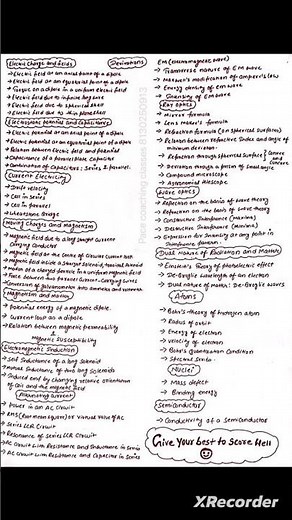 Electric Charge and fields
Derivations
→ Electric field at an axial point of a dipole
→ Electric field at an equatorial point of a dipole
→ Torque on a dipole in a uniform electric field
→ Electric field due to infinite long wire
→ Electric field due to spherical shell
→ Electric field due to thin plane sheet
Electrostatic potential and Capacitance
→ Electric potential at an axial point of a dipole
→ Electric potential at an equatorial point of a dipole
→ Relation between electric field and potential
→ Capacitance of a parallel plate Capacitor
→ Combination of Capacitors: Series & Parallel
Current Electricity
→ Drift velocity
→ Cell in series
→ Cell in parallel
→ Wheatstone Bridge
Moving Charges and magnetism
→ Magnetic field due to a long straight current carrying conductor
→ Magnetic field at the centre of Circular Current loop
→ Magnetic field inside a straight Solenoid, toroidal Solenoid
→ Motion of a charged particle in a uniform magnetic field
→ Force between two parallel Current-Carrying wires
→ Conversion of galvanometer into ammeter and voltmeter
Magnetism and matter
→ Potential energy of a magnetic dipole.
→ Current loop as a dipole
→ Relation between magnetic permeability
&
Magnetic Susceptibility
Electromagnetic Induction
→ Self Inductance of a long Solenoid
→ Mutual Inductance of two long Solenoids
→ Induced emf by changing relative orientation of coil and the magnetic field
Alternating Current
→ Power in an AC circuit
→ RMS (Root mean square) or Virtual value of AC
→ Series LCR Circuit
→ Resonance of Series LCR Circuit
→ AC Circuit with Resistance and Inductance in Series
→ AC Circuit with Resistance and Capacitor in Series
EM (Electromagnetic wave)
→ Transverse nature of EM wave
→ Maxwell's modification of Ampere's law
→ Energy density of EM wave
→ Intensity of EM wave
Ray optics
→ Mirror formula
→ Lens maker's formula
→ Refraction formula (on spherical surfaces)
→ Relation between Refractive Index and angle of minimum deviation
→ Refraction through spherical surface
and concave
→ Deviation through a prism of small angle
→ Compound microscope
→ Astronomical telescope
Wave optics
→ Reflection on the basis of wave theory
→ Refraction on the basis of wave theory
→ Constructive Interference (maxima)
→ Destructive Interference (minima)
→ Expression for Intensity at any point in Interference pattern.
Dual Nature of Radiation and Matter
→ Einstein's theory of photoelectric effect
→ De-Broglie wavelength of an electron
→ Dual nature of matter: De-Broglie waves
Atoms
→ Bohr's theory of hydrogen atom
→ Radius of orbit
→ Energy of electron
→ Velocity of electron
→ Bohr's Quantization Condition
→ Spectral Series
Nuclei
→ Mass defect
→ Binding energy
Semiconductor
→ Conductivity of a Semiconductor
Give Your best to score Well
XRecorder